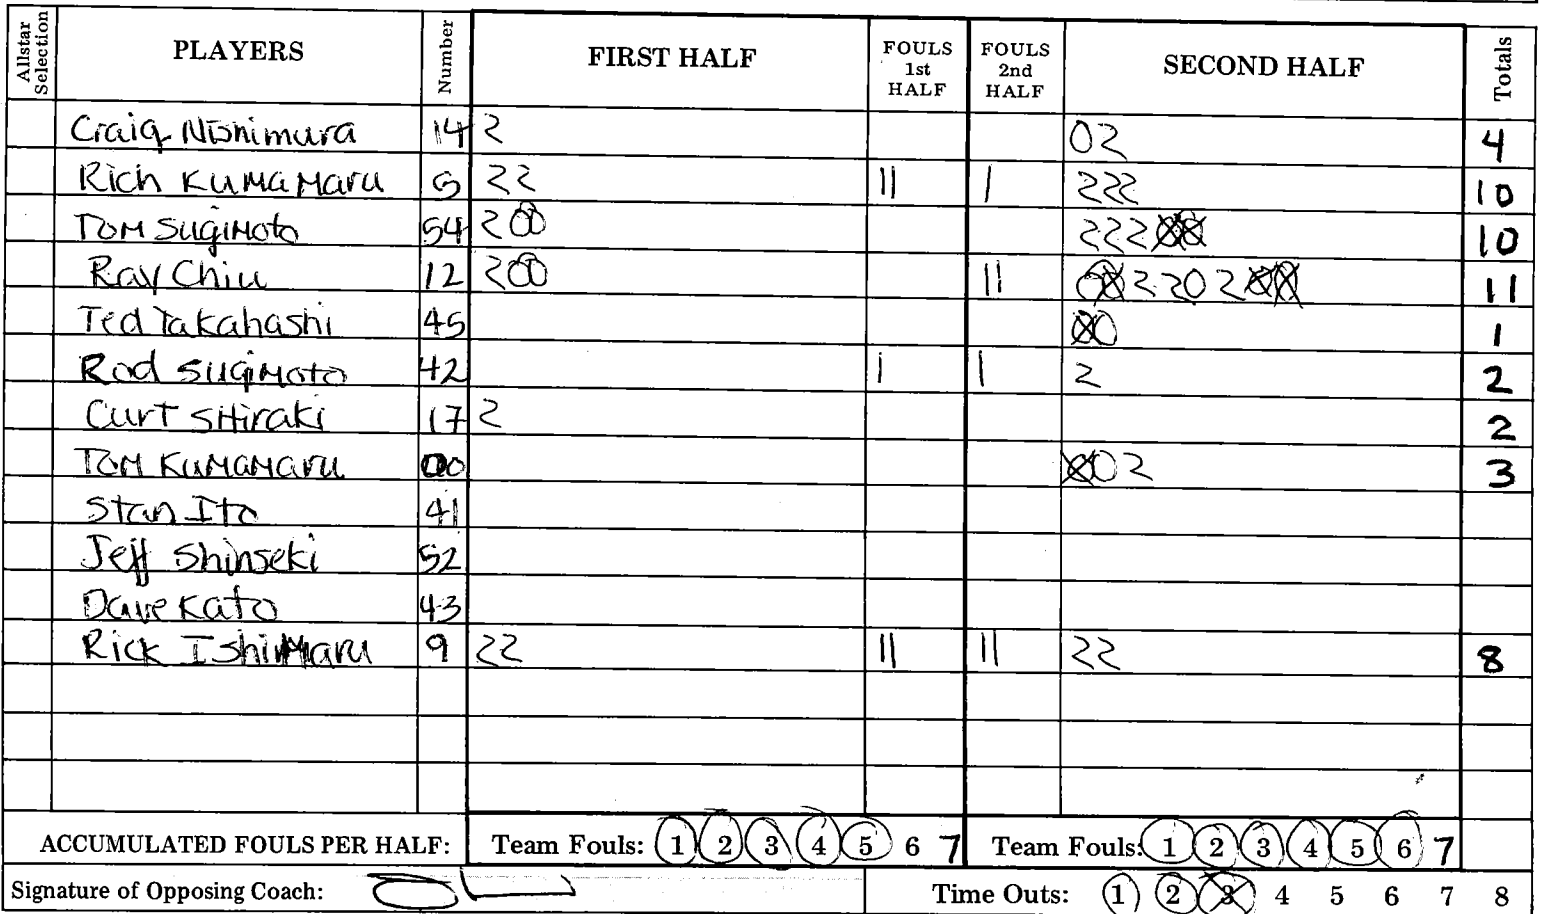 Allstar Selection PLAYERS Number FIRST HALF FOULS 1st HALF FOULS 2nd HALF SECOND HALF Totals
Craig Nishimura 14 2 02 4
Rich Kumamaru 22 || | 222 10
Tom Sugimoto 54 200 22200 10
Ray Chiu 12 200 || 11
Ted Takahashi 45 00 1
Rod Sugimoto 42 | | 2 2
Curt Shiraki 17 2 2
Tom Kumamaru 00 002 3
Stan Ito 41
Jeff Shinseki 52
Dave Kato 43
Rick Ishimaru 9 22 || || 22 8
ACCUMULATED FOULS PER HALF: Team Fouls: 1 2 3 4 5 6 7 Team Fouls: 1 2 3 4 5 6 7
Signature of Opposing Coach: Time Outs: 1 2 3 4 5 6 7 8